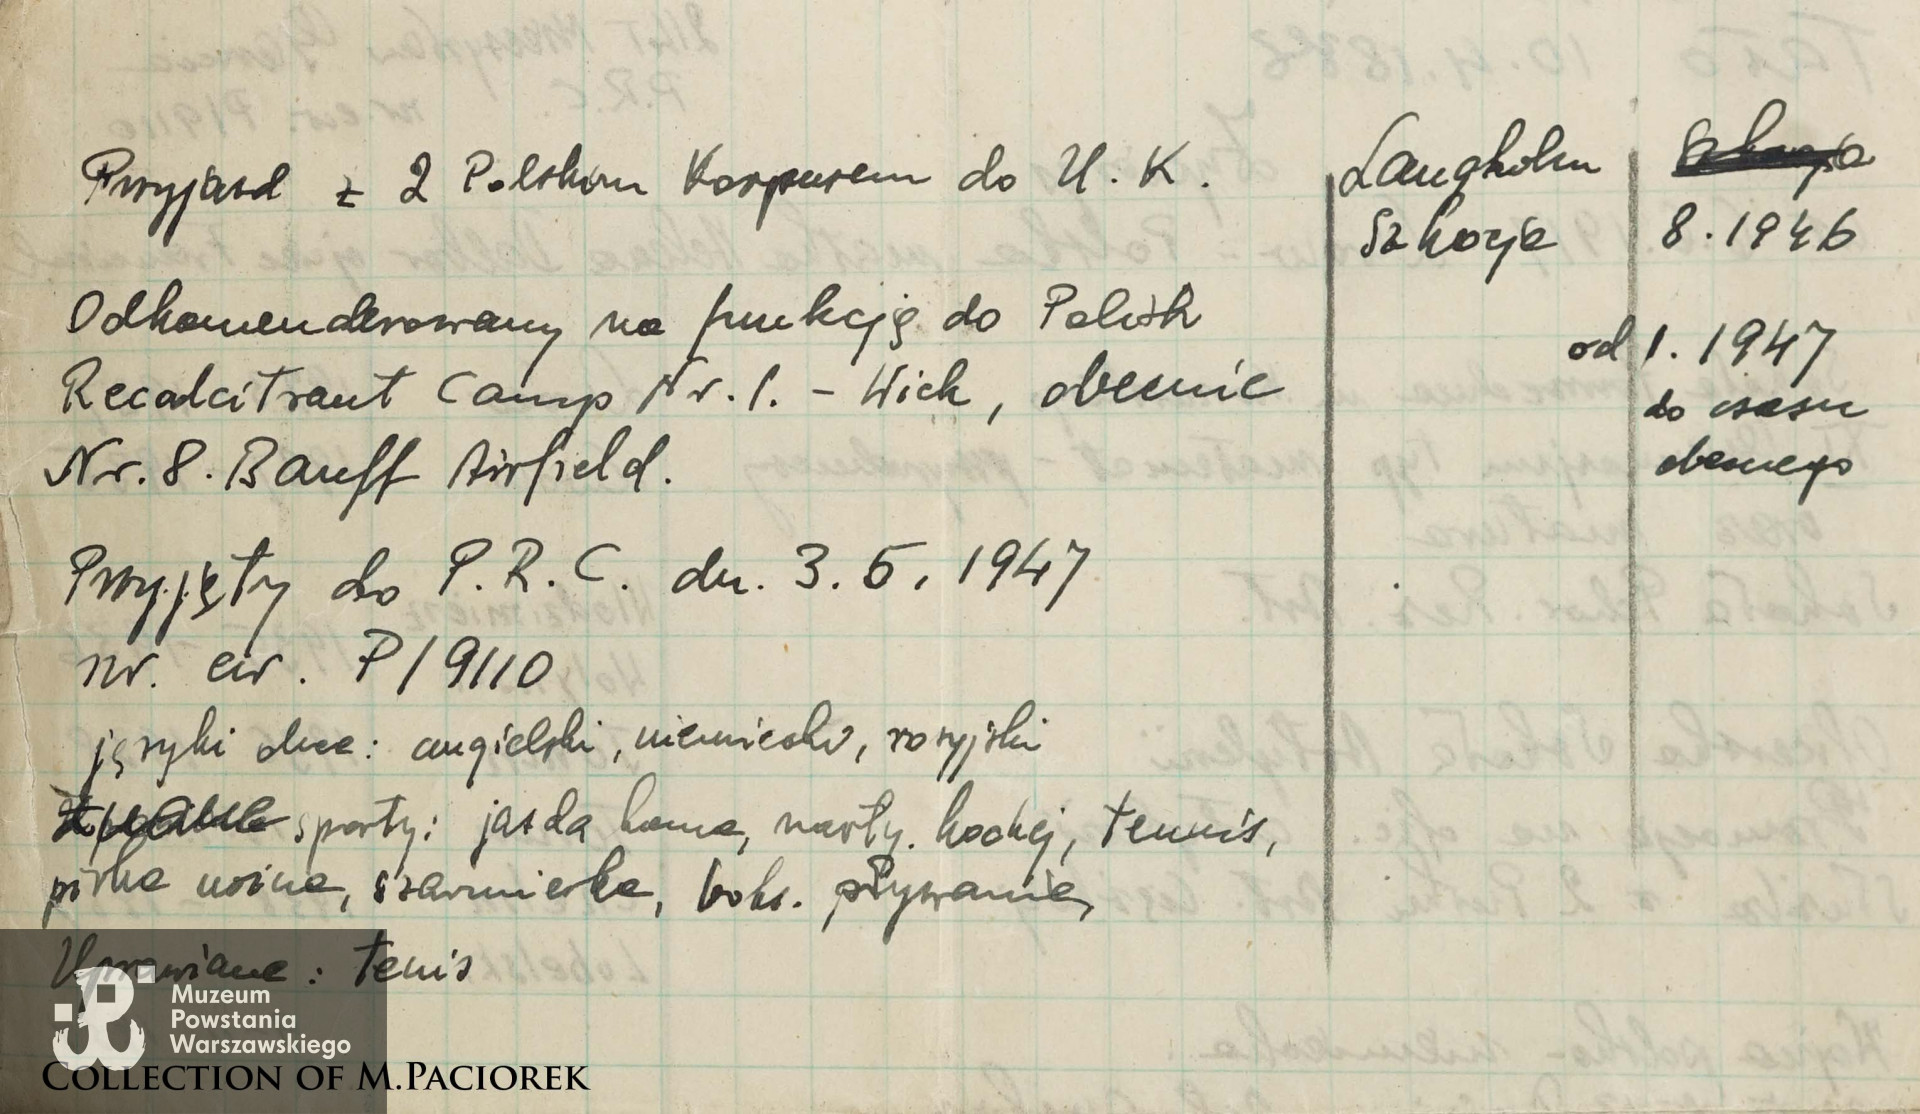 Przyjazd z 2 Polskim Korpusem do U.K. Langholm
Szkocja 8.1946
Odkomenderowany na funkcję do Polish od 1.1947
Recalcitrant Camp Nr.1. - Wick, obecnie do czasu
Nr.8. Banff Airfield. obecnego
Przyjęty do P.R.C. dn. 3.5.1947
nr. ew. P/9110
języki obce: angielski, niemiecki, rosyjski
sporty: jazda konna, narty. hockej, tennis,
piłka nożna, szermierka, boks. pływanie,
Uprawiane: tenis
Muzeum
Powstania
Warszawskiego
COLLECTION OF M.PACIOREK